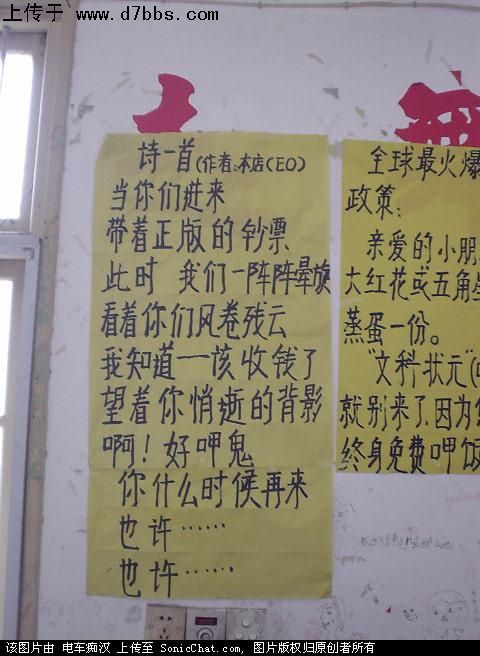 上传于 www.d7bbs.com
诗一首(作者:本店CEO)
当你们进来
带着正版的钞票
此时 我们一阵阵晕旋
看着你们风卷残云
我知道一该收钱了
望着你悄逝的背影
啊!好呷鬼
你什么时候再来
也许……
也许……
全球最火爆
政策:
亲爱的小朋
大红花或五角
蒸蛋一份。
"文科状元"
就别来了,因为
终身免费呷饭
该图片由 电车痴汉 上传至 SonicChat.com, 图片版权归原创者所有